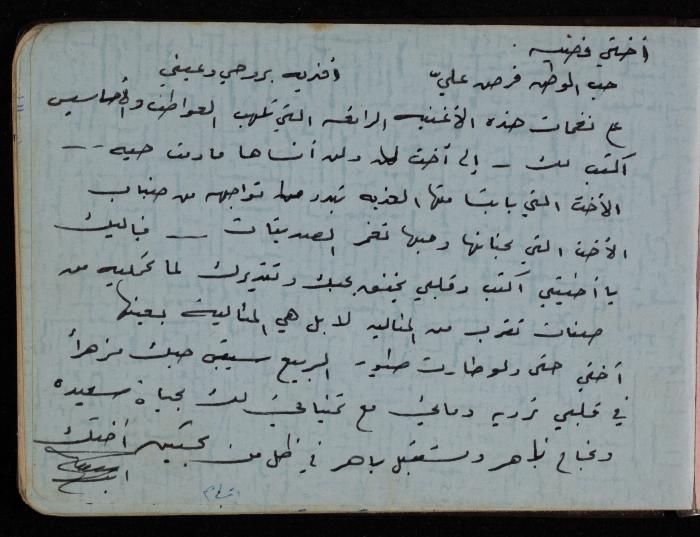 أختي فضيه .
حب الوطن فرض عليّ أفديه بروحي وعيني
ع نغمات هذه الأغنيه الرائعه التي تلهب العواطف والأحاسيس
أكتب لك – إلى أخت لم ولن أنساها مادمت حيه – –
الأخت التي بابتسامتها العذبه تبدد ما تواجهه من ضباب
الأخت التي بحنانها وحبها تغمر الصديقات – فإليك
يا أخيتي أكتب وقلبي يخفق بحبك وتقديرك لما تحمليه من
صفات تقرب من المثاليه لا بل هي المثالية بعينها
أختي حتى ولو طارت طيور الربيع سيبقى حبك مزهراً
في قلبي ترويه دمائي مع تمنياتي لك بحياة سعيدة
ونجاح باهر ومستقبل باهر في ظل من تحبين أختك
ابتسام